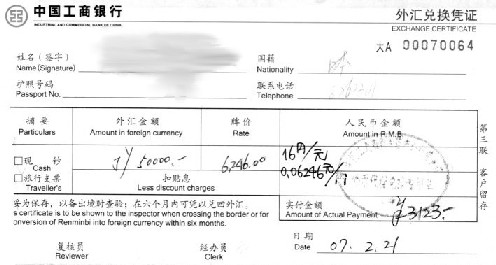 中国工商银行
INDUSTRIAL AND COMMERCIAL BANK OF CHINA
外汇兑换凭证
EXCHANGE CERTIFICATE
大A 00070064
姓名（签字）
Name (Signature)
国籍
Nationality
护照号码
Passport No.
联系电话
Telephone
摘要
Particulars
外汇金额
Amount in foreign currency
牌价
Rate
人民币金额
Amount in R.M.B.
现 钞
Cash
旅行支票
Traveller's
JY 50000.-
6,246.00
16円/元
0,06246元/円
扣贴息
Less discount charges
实付金额
Amount of Actual Payment
¥3123.-
第三联 客户留存
妥为保存，以备出境时查验；在六个月内可凭以兑回外汇。
s certificate is to be shown to the inspector when crossing the border or for
onversion of Renminbi into foreign currency within six months.
复核员
Reviewer
经办员
Clerk
日期
Date
07. 2. 21